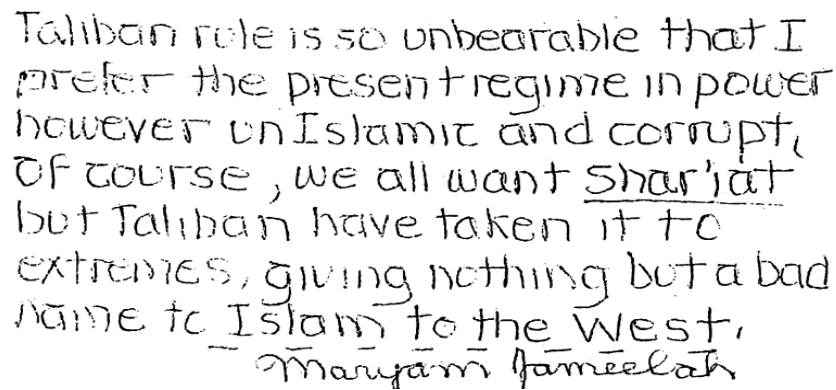 Taliban rule is so unbearable that I
prefer the present regime in power
however unIslamic and corrupt,
Of course, we all want Shar'iat
but Taliban have taken it to
extremes, giving nothing but a bad
name to Islam to the West.
Maryam Jameelah